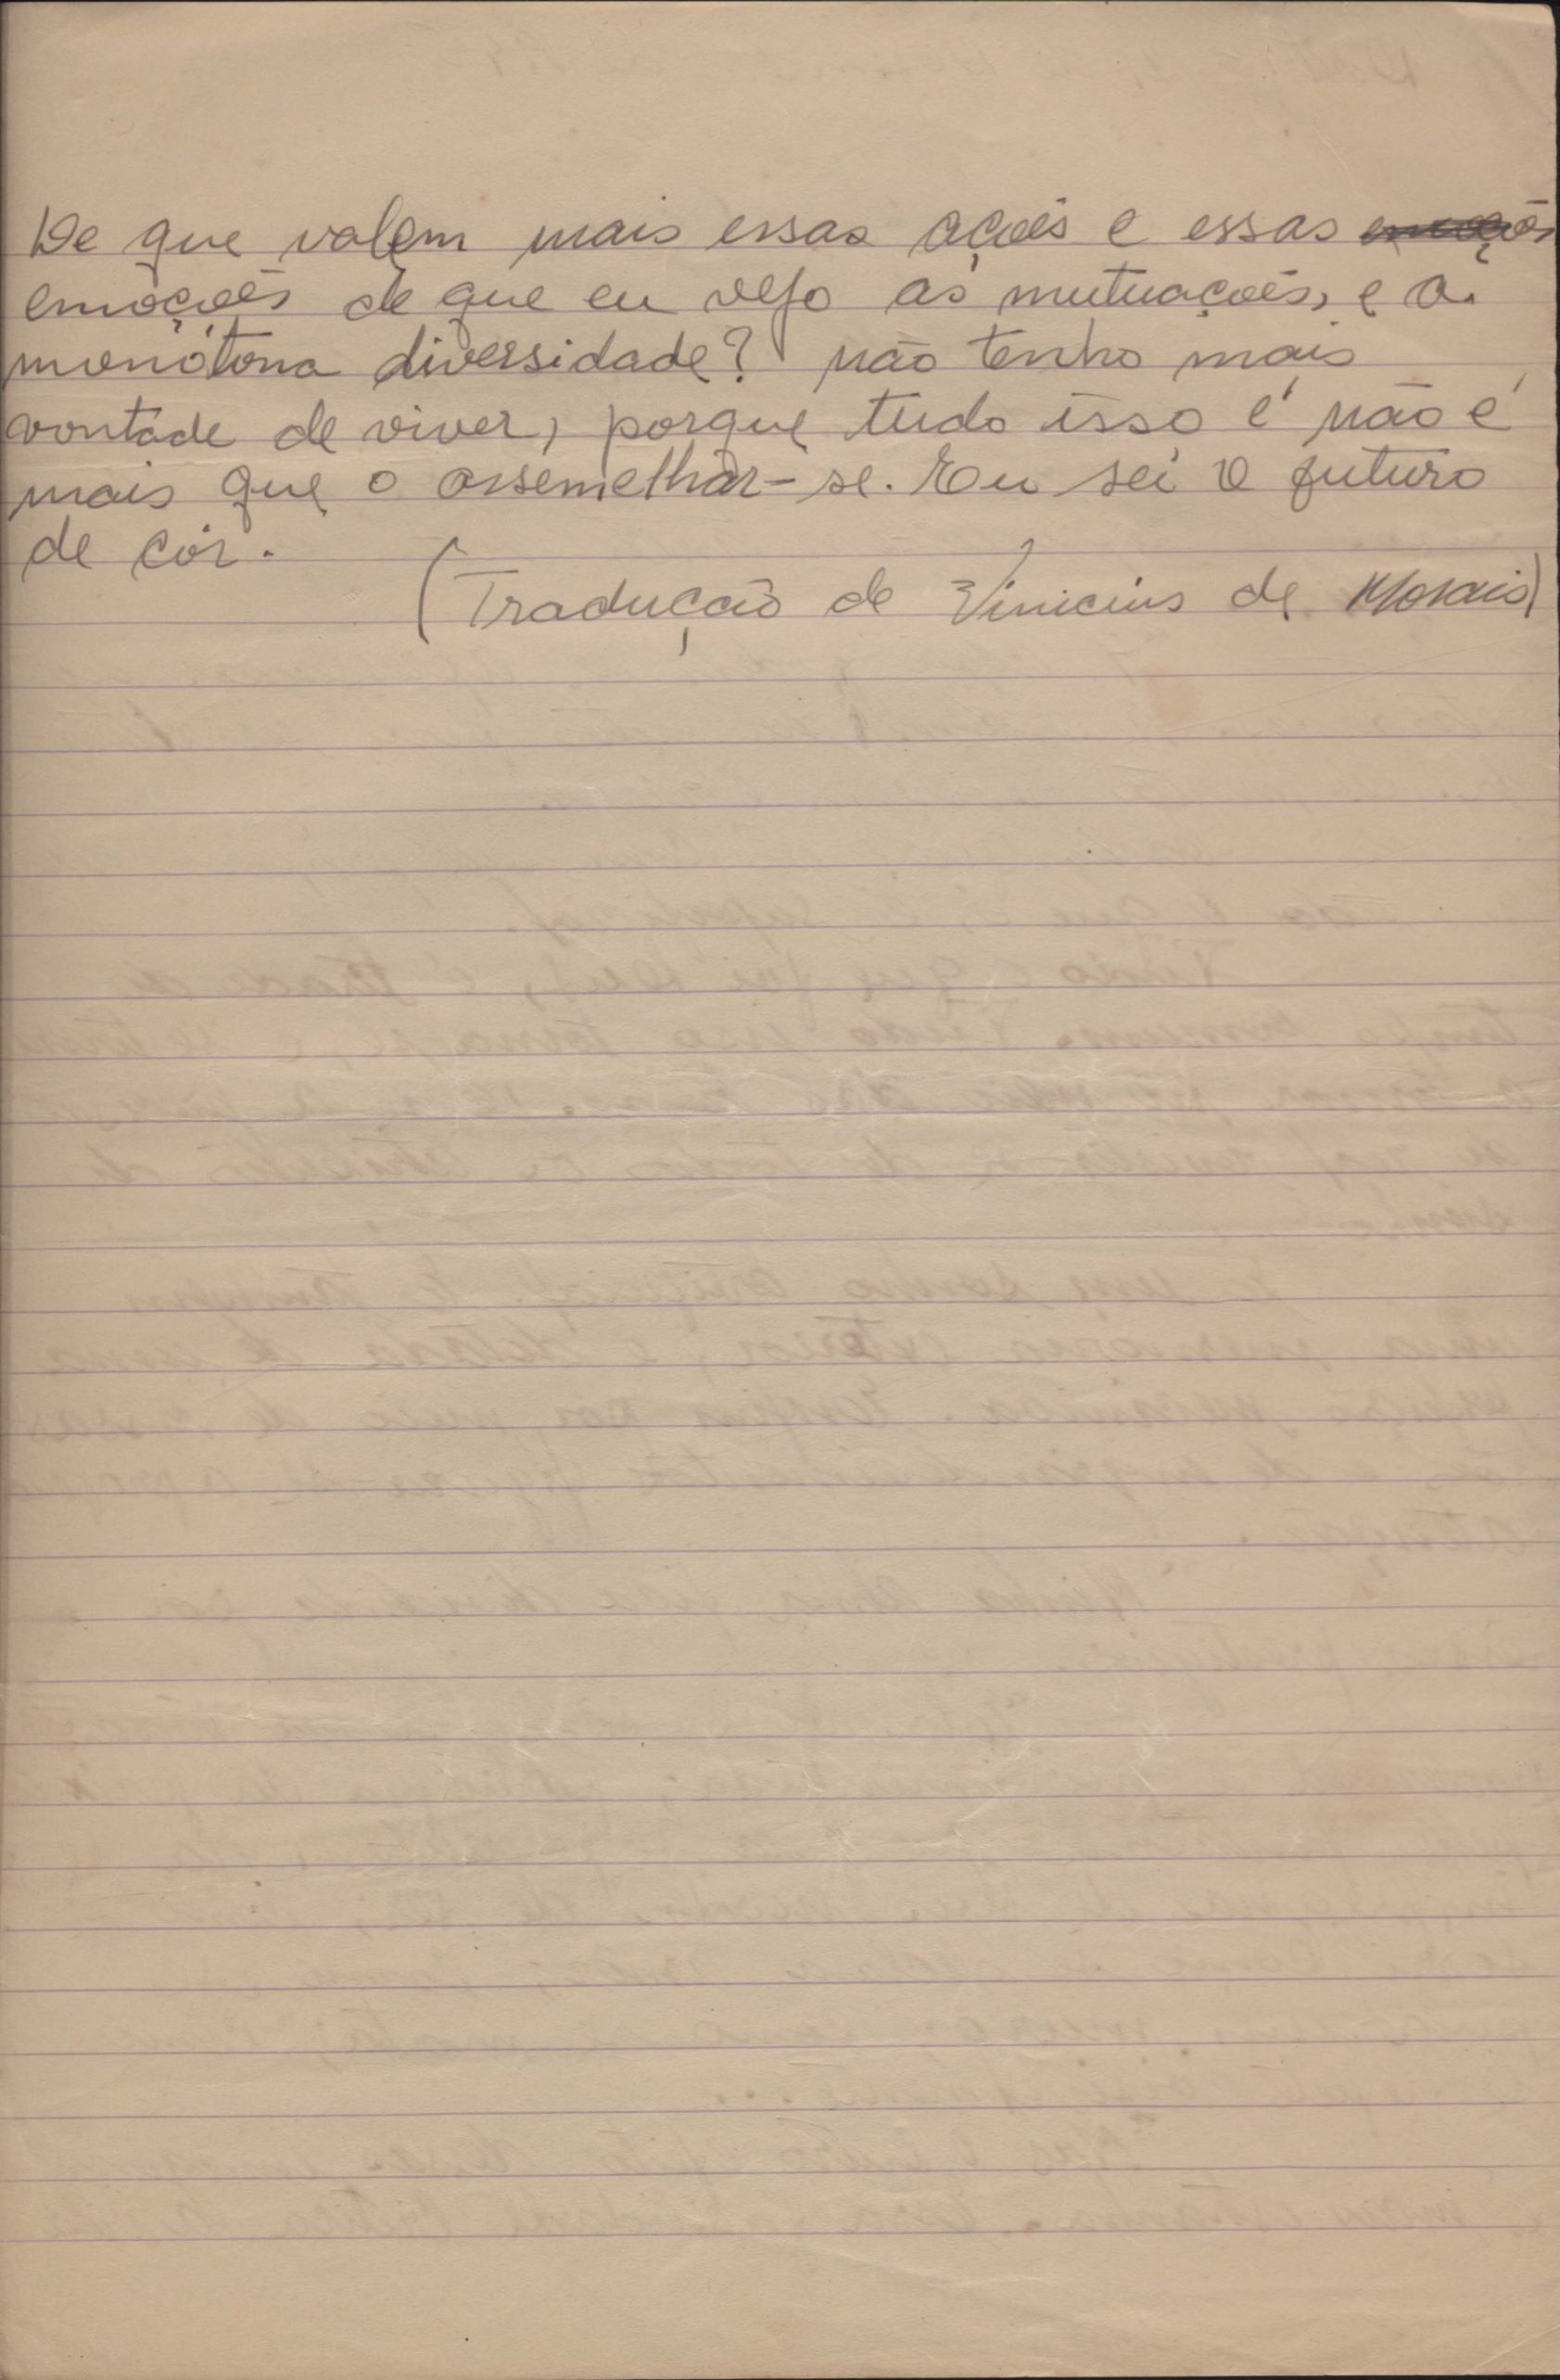 De que valem mais essas ações e essas emoções
emoções de que eu vejo as mutuações, e a
monótona diversidade? não tenho mais
vontade de viver, porque tudo isso é não é
mais que o assemelhar-se. Eu sei o futuro
de cór.
(Tradução de Vinicius de Morais)